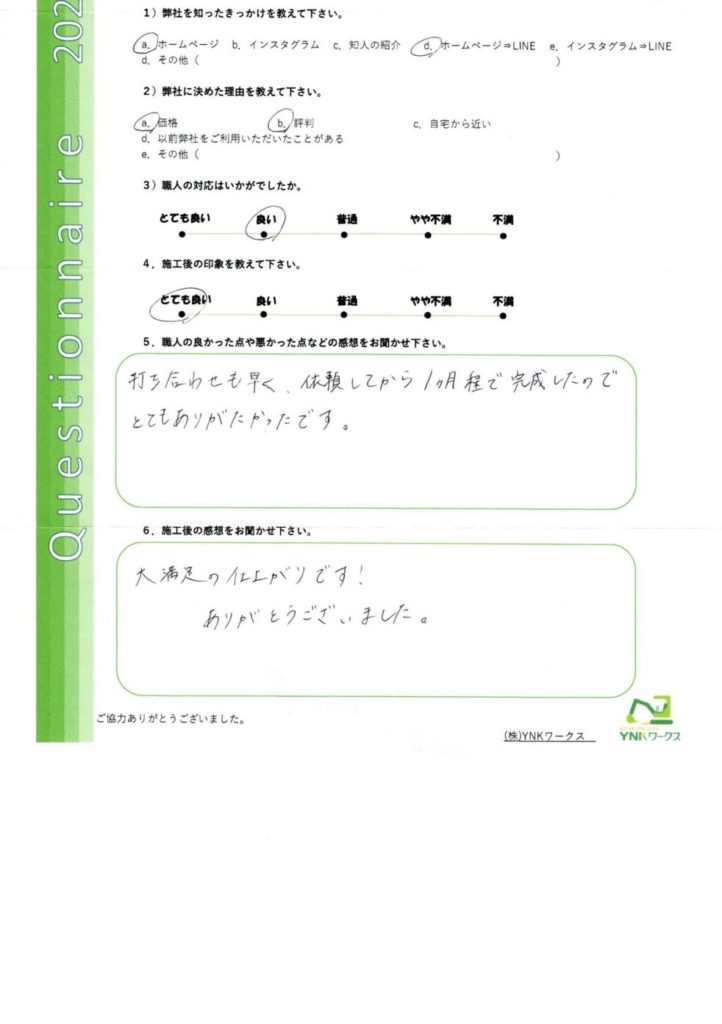 Questionnaire 202
1）弊社を知ったきっかけを教えて下さい。
a. ホームページ b. インスタグラム c. 知人の紹介 d. ホームページ⇒LINE e. インスタグラム⇒LINE
d. その他（ ）
2）弊社に決めた理由を教えて下さい。
a. 価格 b. 評判 c. 自宅から近い
d. 以前弊社をご利用いただいたことがある
e. その他（ ）
3）職人の対応はいかがでしたか。
とても良い 良い 普通 やや不満 不満
4．施工後の印象を教えて下さい。
とても良い 良い 普通 やや不満 不満
5．職人の良かった点や悪かった点などの感想をお聞かせ下さい。
打ち合わせも早く、依頼してから1ヶ月程で完成したので
とてもありがたかったです。
6．施工後の感想をお聞かせ下さい。
大満足の仕上がりです！
ありがとうございました。
ご協力ありがとうございました。
(株)YNKワークス
YNKワークス